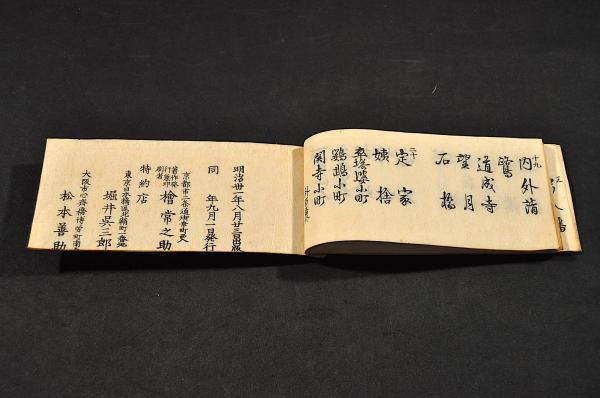 十九
内外詣
鷺
道成寺
望月
石橋
二十
定家
姨捨
卒塔婆小町
鸚鵡小町
関寺小町
明治卅一年八月廿三日出版
同年九月一日発行
京都市二条通御幸町西入
著作発行兼印刷者 檜常之助
特約店
堀井呉三郎
大阪市心斎橋博労町南
松本善助